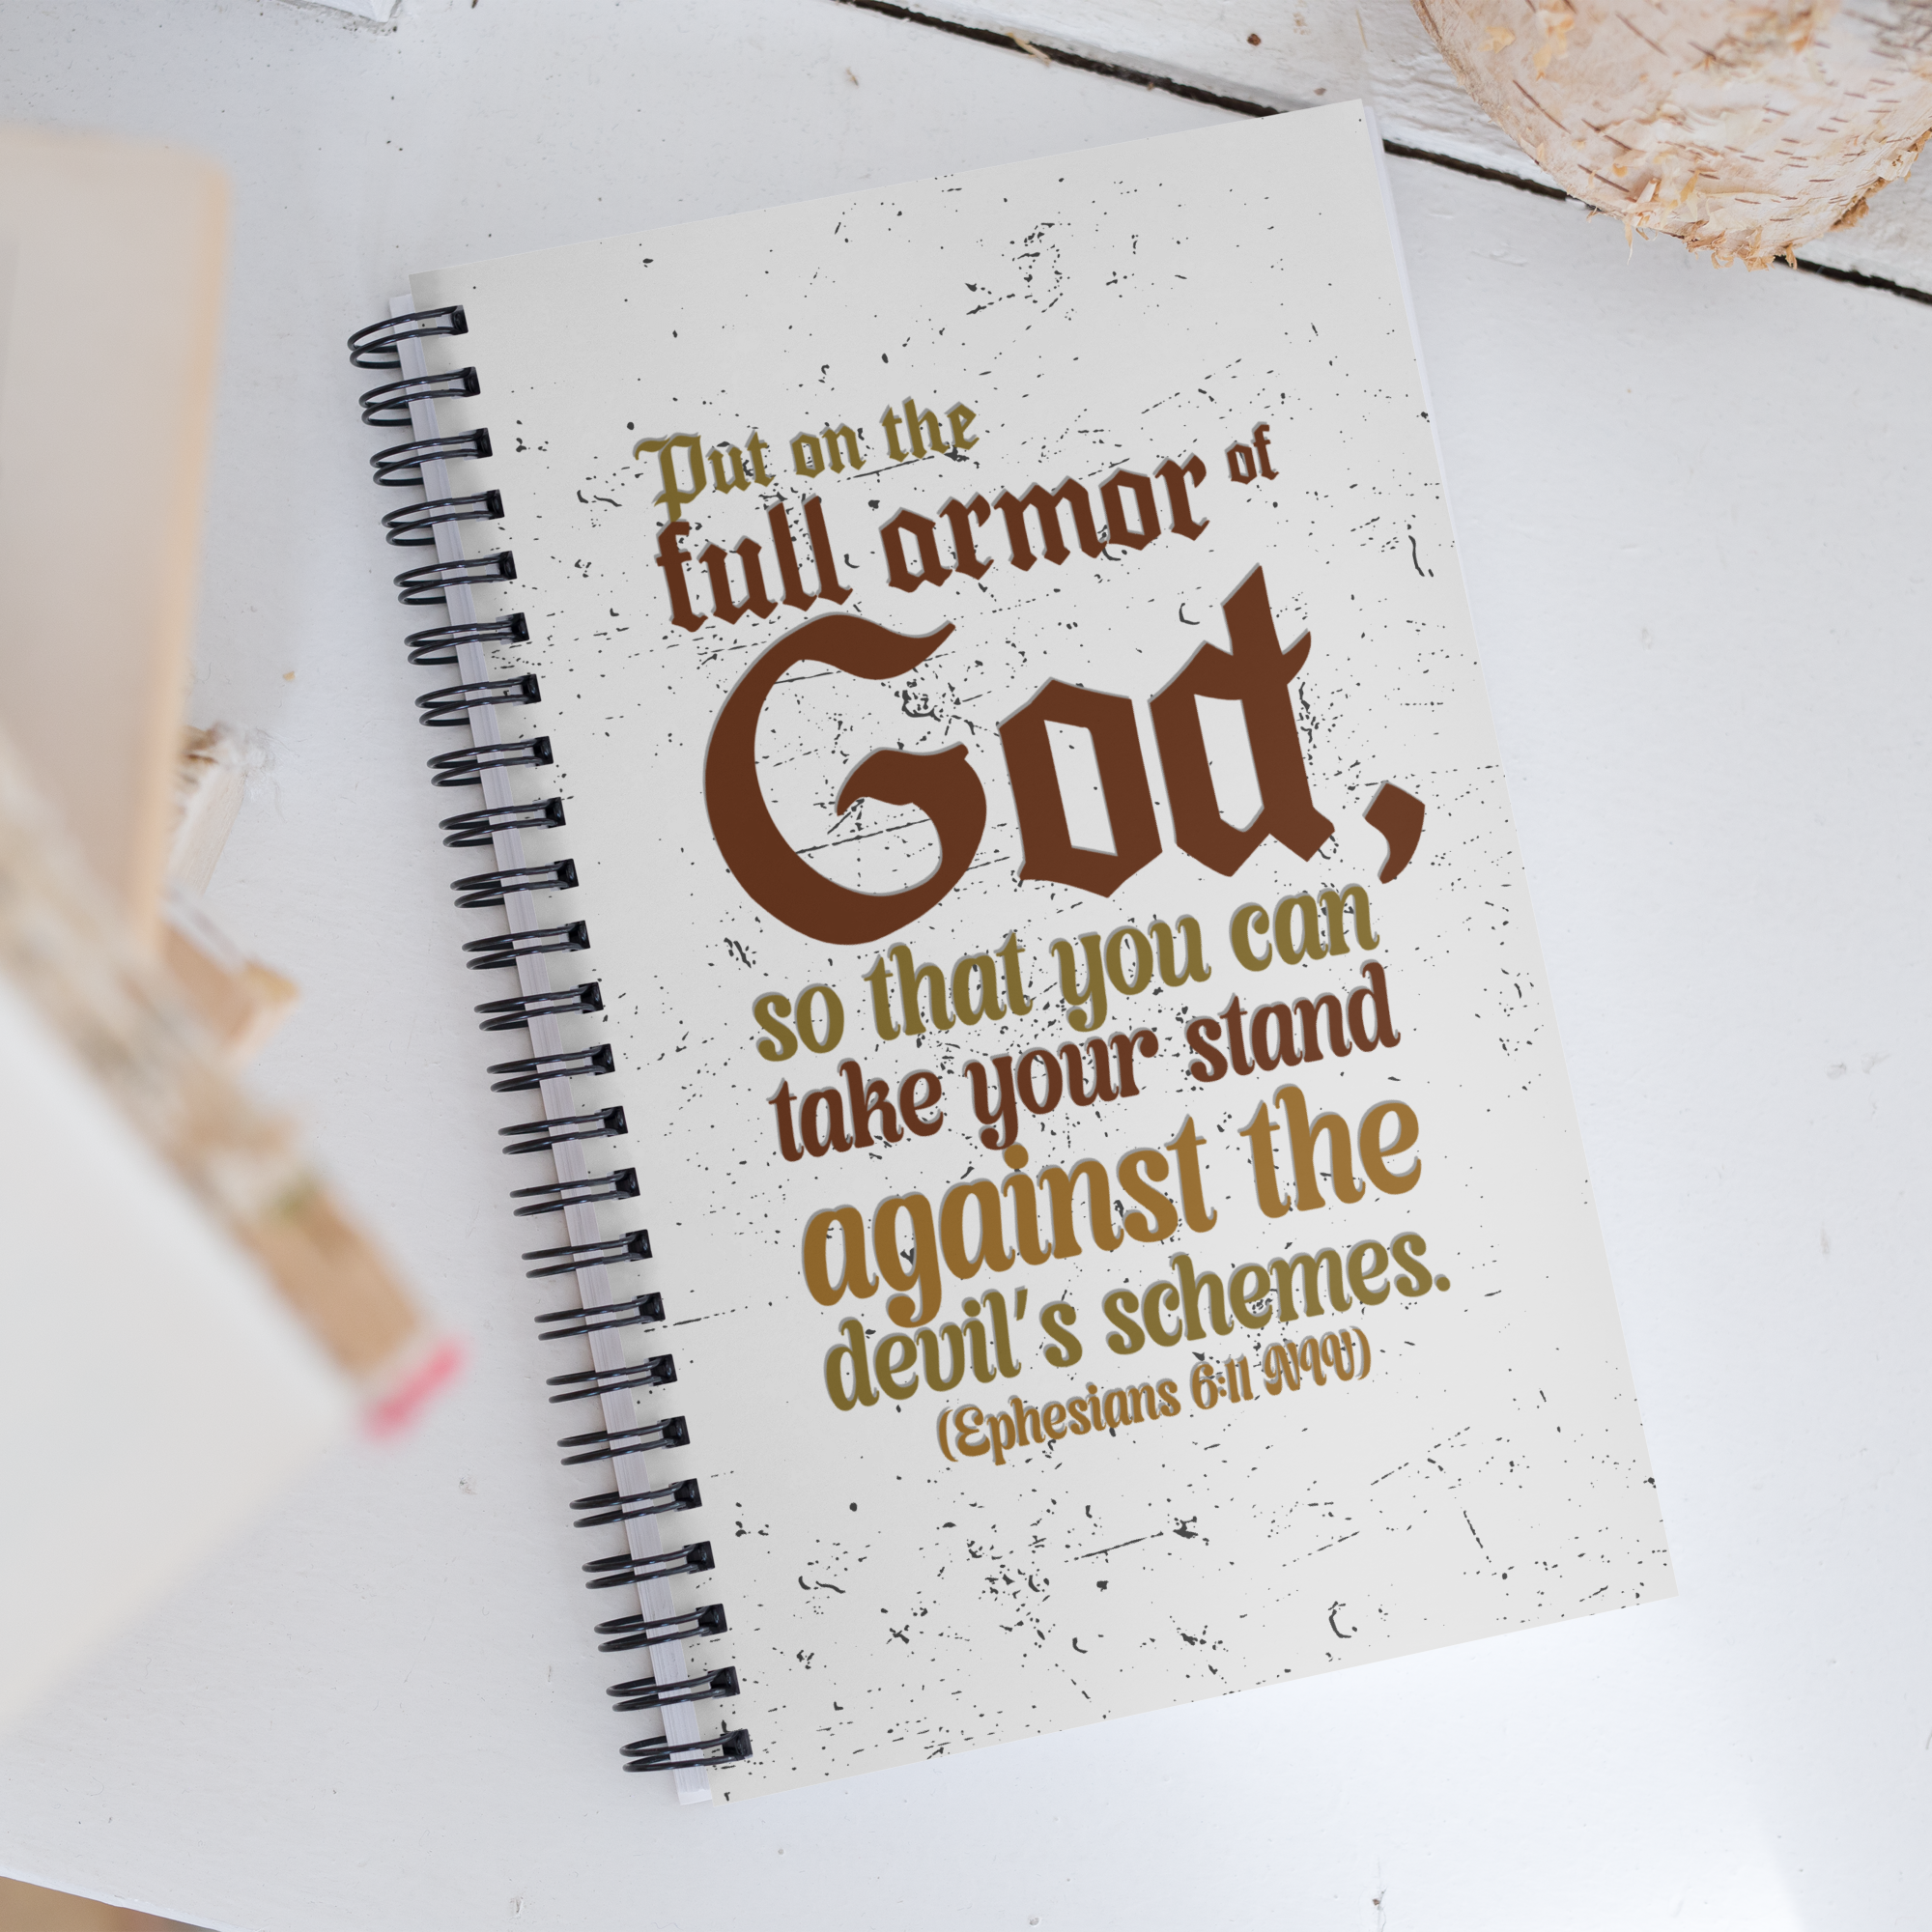 Put on the
full armor of
God,
so that you can
take your stand
against the
devil's schemes.
(Ephesians 6:11 NIV)